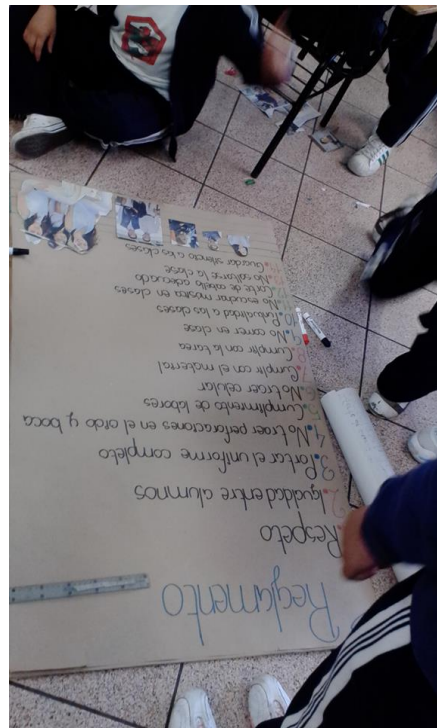 Reglamento
Respeto
2. Igualdad entre alumnos
3. Portar el uniforme completo
4. No traer perforaciones en el oido y boca
5. Cumplimento de labores
No traer celular
7. Cumplir con el material
8. Cumplir con la tarea
9. No correr en clase
10. Puntualidad a las clases
No escuchar musica en clases
Corte de cabello adecuado
No saltarse la clase
Guardar silencio a las clases